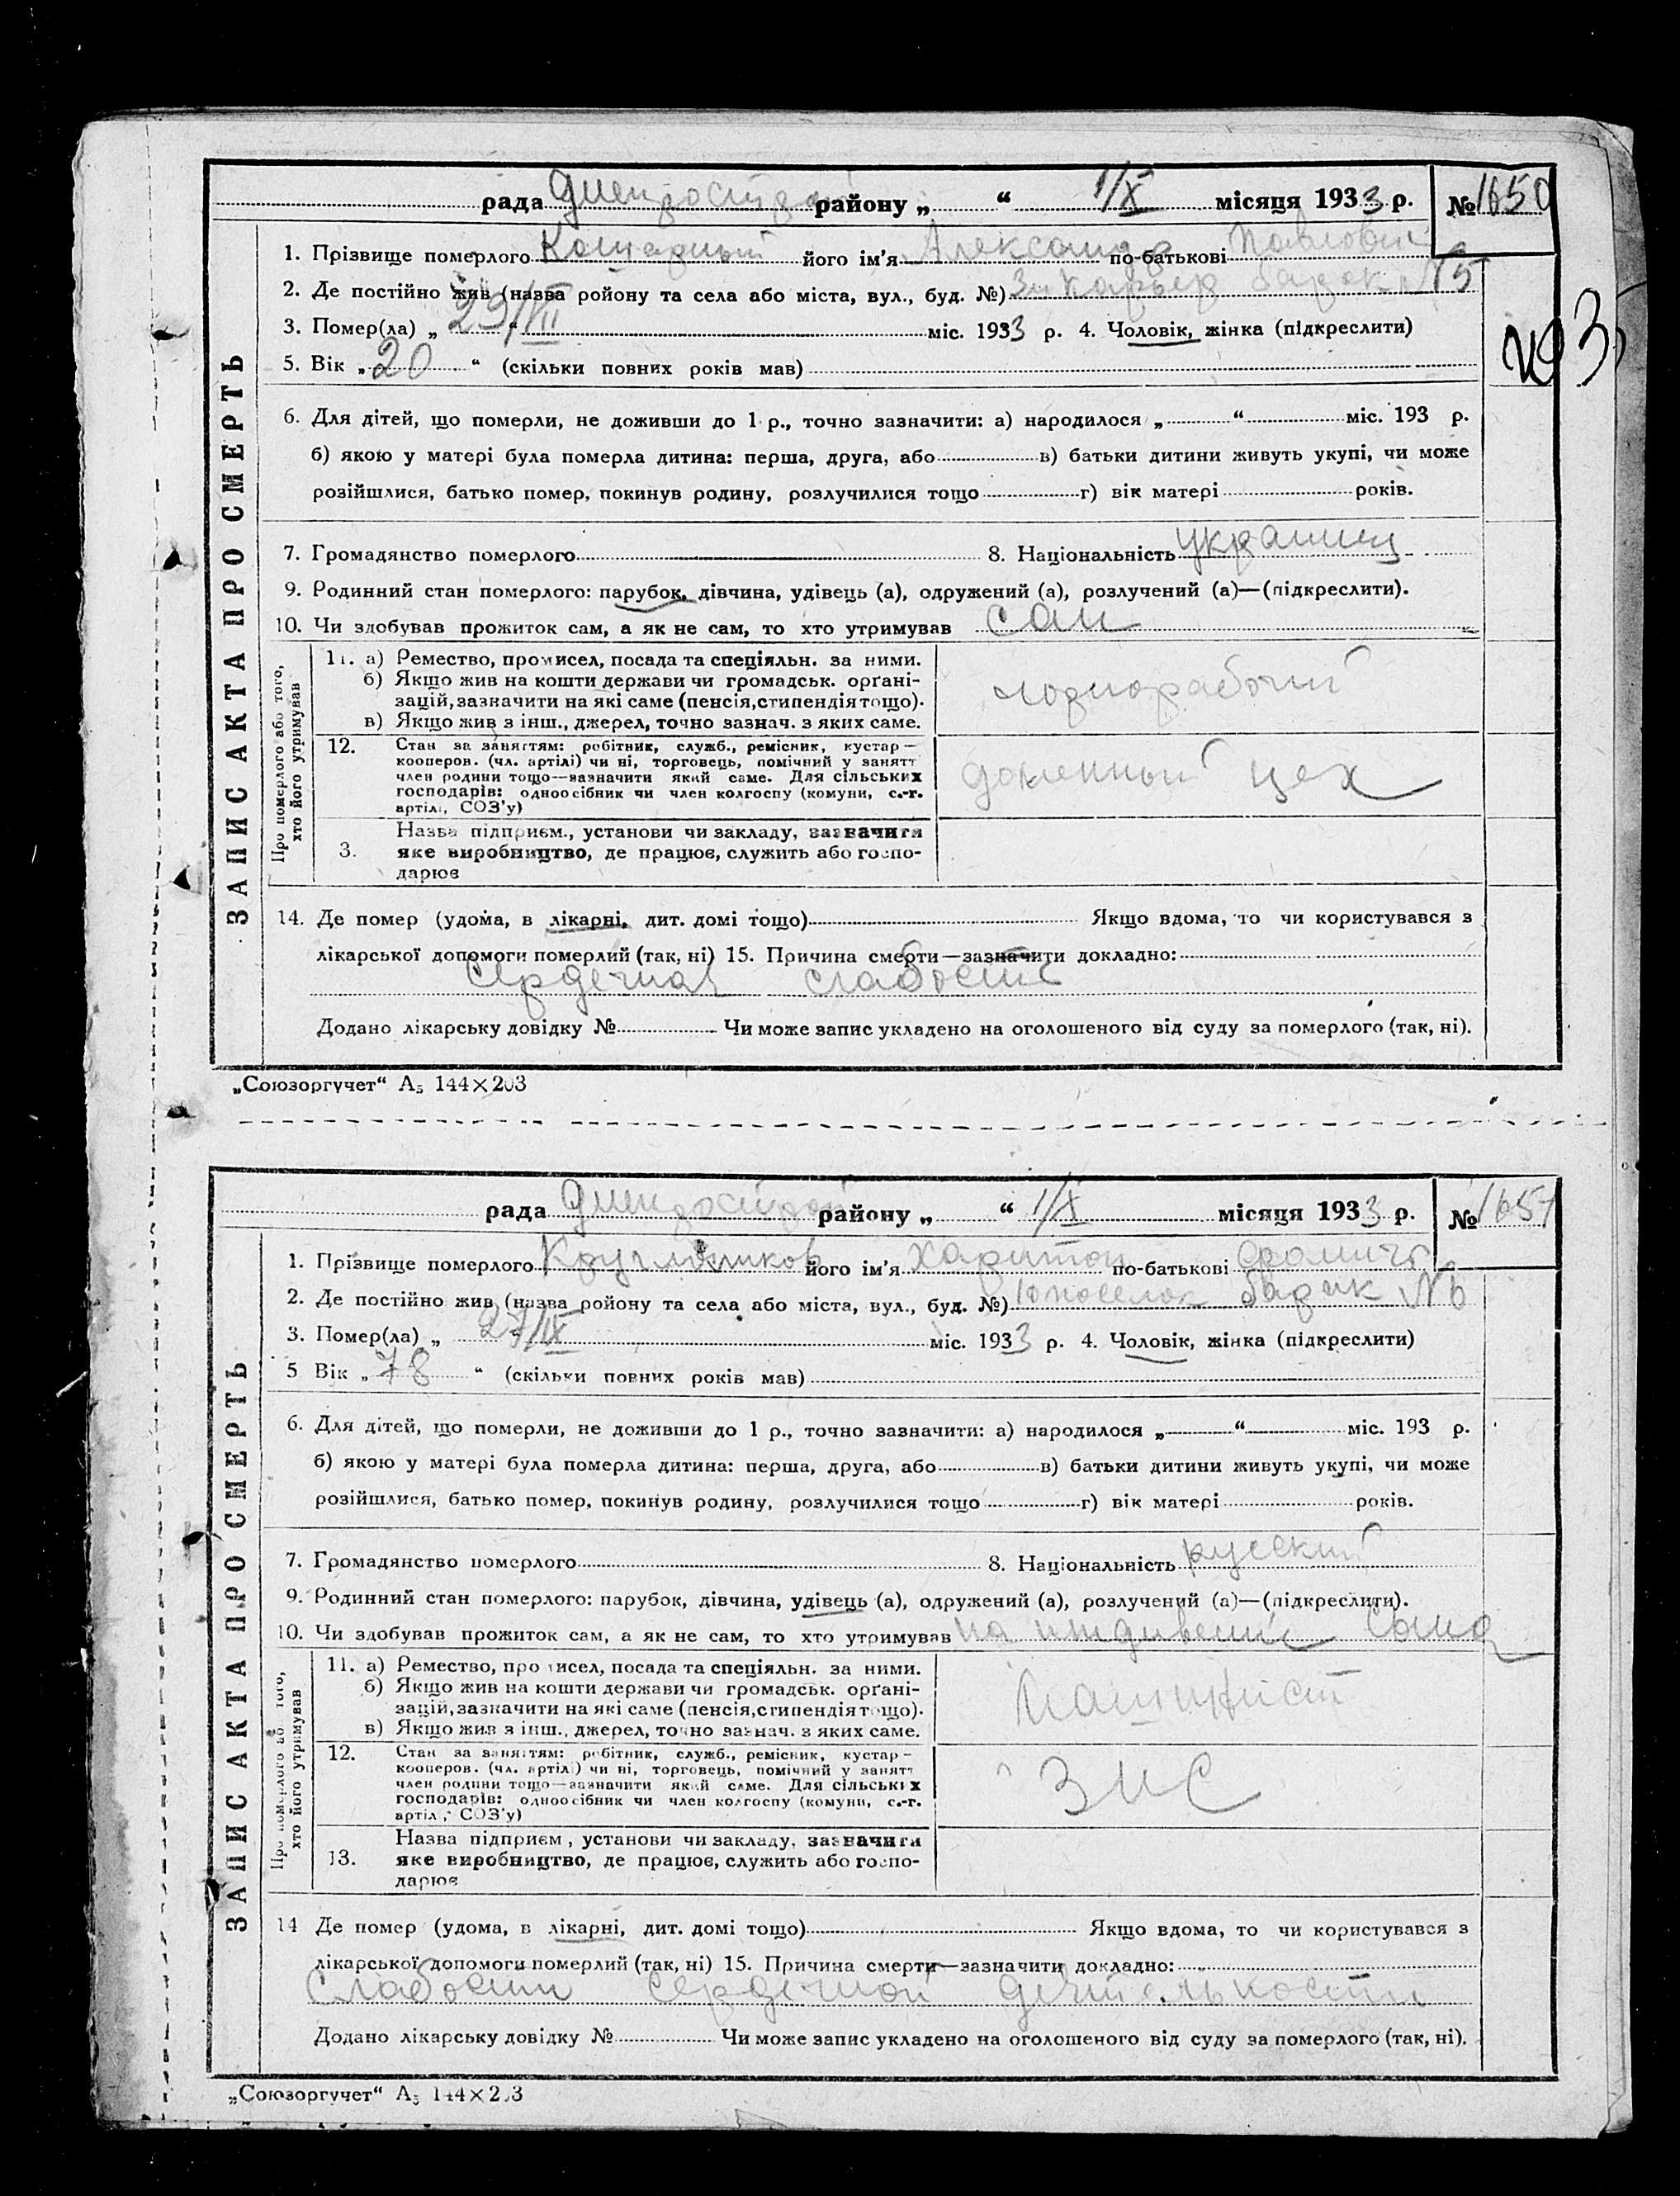 рада Днепрострой району „ “ 1/X місяця 1933 р. № 1650
1. Прізвище померлого його ім'я Александр по-батькові Павлович
2. Де постійно жив (назва ройону та села або міста, вул., буд. №) Карьер барак №5
3. Помер(ла) „ 29/VII “ міс. 1933 р. 4. Чоловік, жінка (підкреслити)
5. Вік „ 20 “ (скільки повних років мав)
6. Для дітей, що померли, не доживши до 1 р., точно зазначити: а) народилося „ “ міс. 193 р.
б) якою у матері була померла дитина: перша, друга, або в) батьки дитини живуть укупі, чи може
розійшлися, батько помер, покинув родину, розлучилися тощо г) вік матері років.
7. Громадянство померлого 8. Національність украинец
9. Родинний стан померлого: парубок, дівчина, удівець (а), одружений (а), розлучений (а)—(підкреслити).
10. Чи здобував прожиток сам, а як не сам, то хто утримував сам
ЗАПИС АКТА ПРО СМЕРТЬ
Про померлого або того, хто його утримував
11. а) Ремество, промисел, посада та спеціяльн. за ними.
б) Якщо жив на кошти держави чи громадськ. орґані-
зацій, зазначити на які саме (пенсія, стипендія тощо).
в) Якщо жив з інш., джерел, точно зазнач. з яких саме.
чорнорабочий
12. Стан за заняттям: робітник, служб., ремісник, кустар—
кооперов. (чл. артілі) чи ні, торговець, помічний у занятт
член родини тощо—зазначити який саме. Для сільських
господарів: одноосібник чи член колгоспу (комуни, с.-г.
артілі, СОЗ'у)
доменный цех
3. Назва підприєм., установи чи закладу, зазначити
яке виробництво, де працює, служить або госпо-
дарює
14. Де помер (удома, в лікарні, дит. домі тощо) Якщо вдома, то чи користувався з
лікарської допомоги померлий (так, ні) 15. Причина смерти—зазначити докладно:
Сердечная слабость
Додано лікарську довідку № Чи може запис укладено на оголошеного від суду за померлого (так, ні).
„Союзоргучет“ А5 144×203
рада Днепрострой району „ “ 1/X місяця 1933 р. № 1651
1. Прізвище померлого Кругликов його ім'я Харитон по-батькові Фомич
2. Де постійно жив (назва ройону та села або міста, вул., буд. №) 10 поселок барак №6
3. Помер(ла) „ 27/IX “ міс. 1933 р. 4. Чоловік, жінка (підкреслити)
5 Вік „ 78 “ (скільки повних років мав)
6. Для дітей, що померли, не доживши до 1 р., точно зазначити: а) народилося „ “ міс. 193 р.
б) якою у матері була померла дитина: перша, друга, або в) батьки дитини живуть укупі, чи може
розійшлися, батько помер, покинув родину, розлучилися тощо г) вік матері років.
7. Громадянство померлого 8. Національність русский
9. Родинний стан померлого: парубок, дівчина, удівець (а), одружений (а), розлучений (а)—(підкреслити).
10. Чи здобував прожиток сам, а як не сам, то хто утримував на иждивении сына
ЗАПИС АКТА ПРО СМЕРТЬ
Про померлого або того, хто його утримував
11. а) Ремество, промисел, посада та спеціяльн. за ними.
б) Якщо жив на кошти держави чи громадськ. орґані-
зацій, зазначити на які саме (пенсія, стипендія тощо).
в) Якщо жив з інш., джерел, точно зазнач. з яких саме.
Машинист
12. Стан за заняттям: робітник, служб., ремісник, кустар—
кооперов. (чл. артілі) чи ні, торговець, помічний у занятт
член родини тощо—зазначити який саме. Для сільських
господарів: одноосібник чи член колгоспу (комуни, с.-г.
артілі, СОЗ'у)
ЗИС
13. Назва підприєм., установи чи закладу, зазначити
яке виробництво, де працює, служить або госпо-
дарює
14 Де помер (удома, в лікарні, дит. домі тощо) Якщо вдома, то чи користувався з
лікарської допомоги померлий (так, ні) 15. Причина смерти—зазначити докладно:
Слабость сердечной деятельности
Додано лікарську довідку № Чи може запис укладено на оголошеного від суду за померлого (так, ні).
„Союзоргучет“ А5 144×203